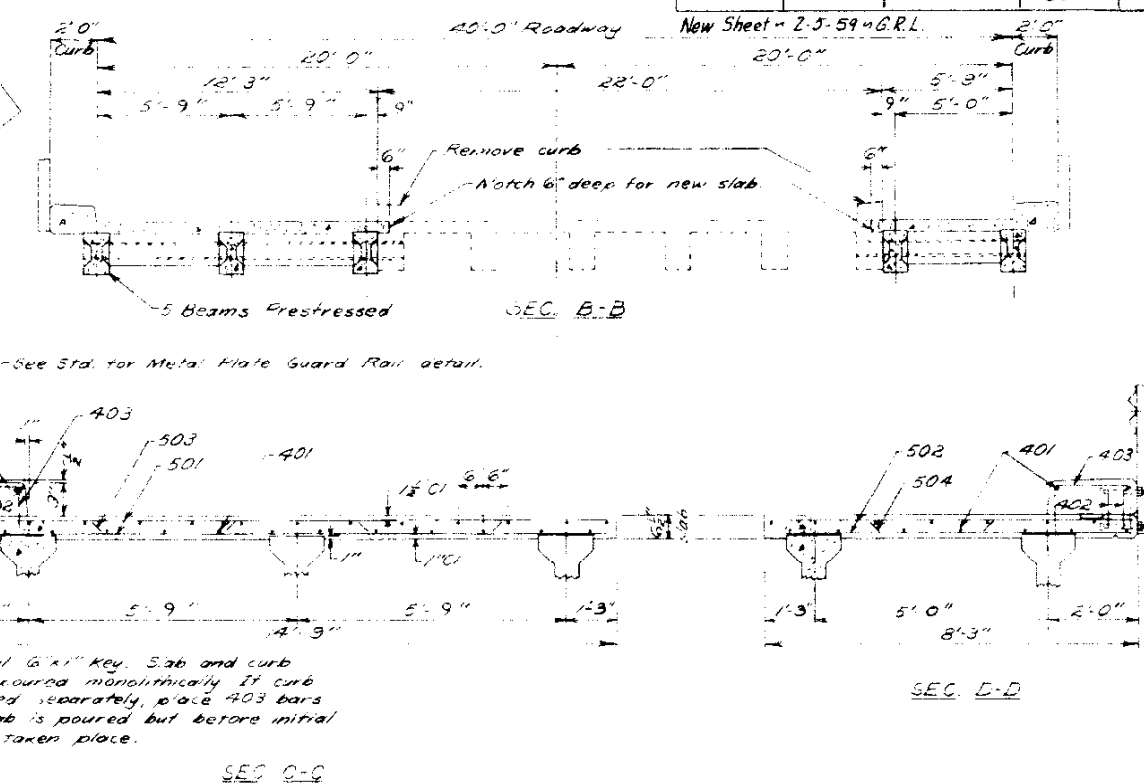 New Sheet ~ 2-5-59 ~ G.R.L.
2'-0" 40'-0" Roadway 2'-0"
Curb Curb
20'-0" 20'-0"
12'-3" 22'-0" 5'-9"
5'-9" 5'-9" 9" 9" 5'-0"
6" Remove curb 6"
Notch 6" deep for new slab.
5 Beams Prestressed
SEC. B-B
See Std. for Metal Plate Guard Rail detail.
403
503
501
401
1½" Cl
6" 6"
3"
1"
1" Cl
6½"
Slab
5'-9" 5'-9" 1'-3"
14'-9"
502
504
401
403
402
1'-3" 5'-0" 2'-0"
8'-3"
6"x1" Key. Slab and curb
poured monolithically If curb
separately, place 403 bars
is poured but before initial
taken place.
SEC. C-C
SEC. D-D